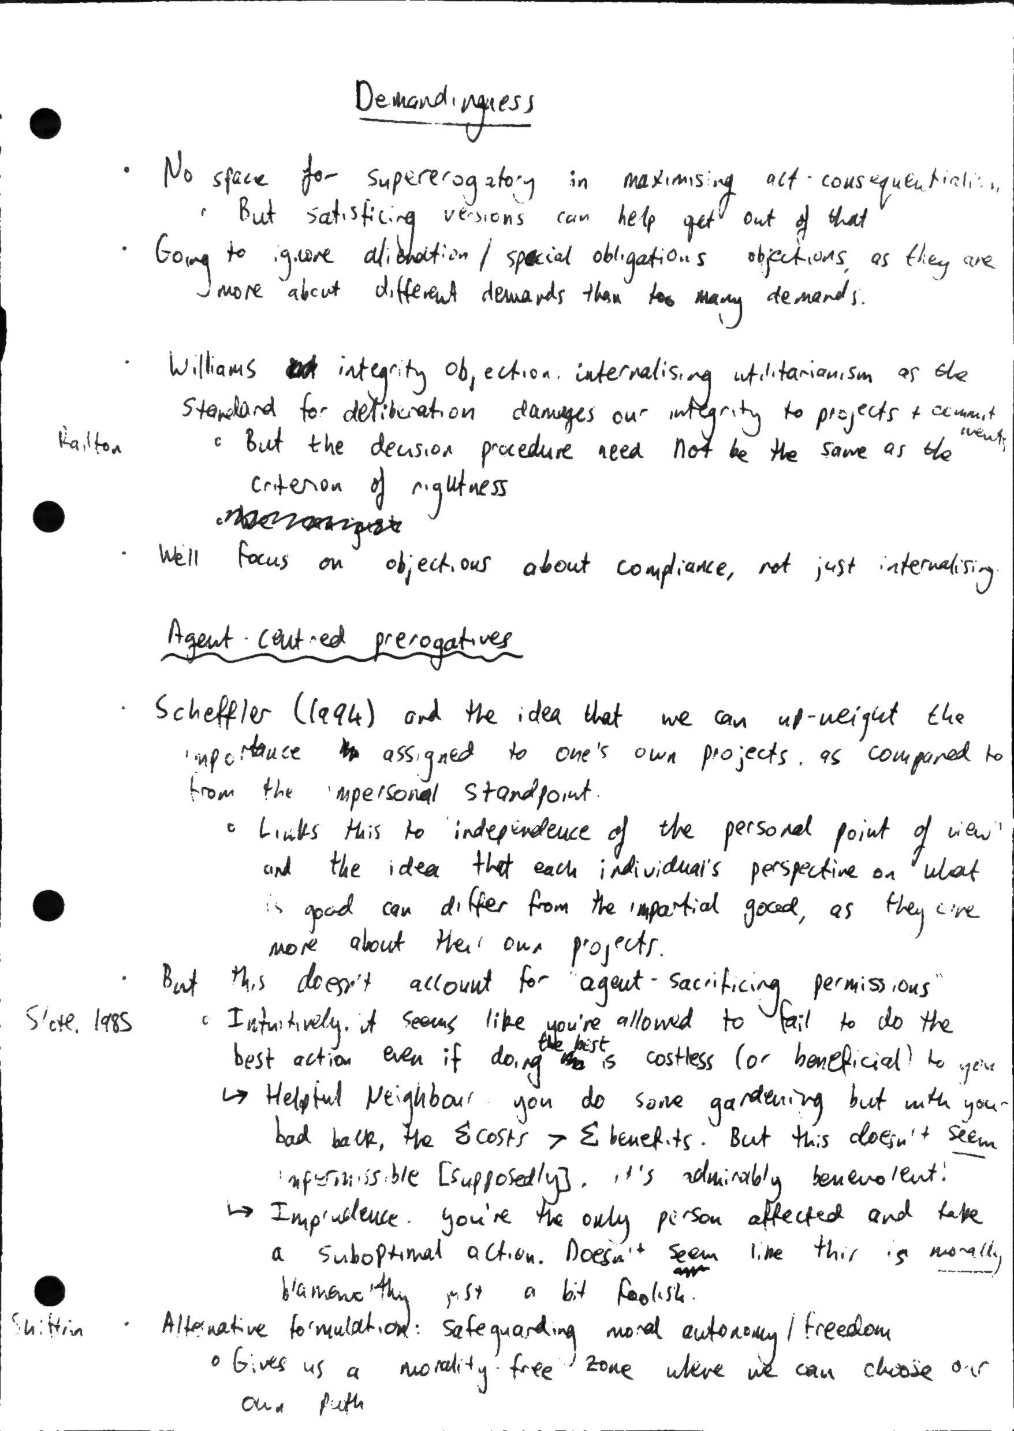 Demandingness
· No space for supererogatory in maximising act-consequentialism
◦ But satisficing versions can help get out of that
· Going to ignore alienation / special obligations objections, as they are
more about different demands than too many demands.
· Williams integrity objection: internalising utilitarianism as the
standard for deliberation damages our integrity to projects + commitments
Railton
◦ But the decision procedure need not be the same as the
criterion of rightness
· We'll focus on objections about compliance, not just internalising.
Agent-centred prerogatives
· Scheffler (1994) and the idea that we can up-weight the
importance assigned to one's own projects, as compared to
from the impersonal standpoint.
◦ Links this to 'independence of the personal point of view'
and the idea that each individual's perspective on what
is good can differ from the impartial good, as they care
more about their own projects.
· But this doesn't account for "agent-sacrificing permissions"
Slote, 1985
◦ Intuitively, it seems like you're allowed to fail to do the
best action even if doing the best is costless (or beneficial) to you
↳ Helpful Neighbour: you do some gardening but with your
bad back, the Σcosts > Σbenefits. But this doesn't seem
impermissible [supposedly], it's admirably benevolent!
↳ Imprudence: you're the only person affected and take
a suboptimal action. Doesn't seem like this is morally
blameworthy just a bit foolish.
Shiffrin
· Alternative formulation: safeguarding moral autonomy / freedom
◦ Gives us a morality-free zone where we can choose our
own path